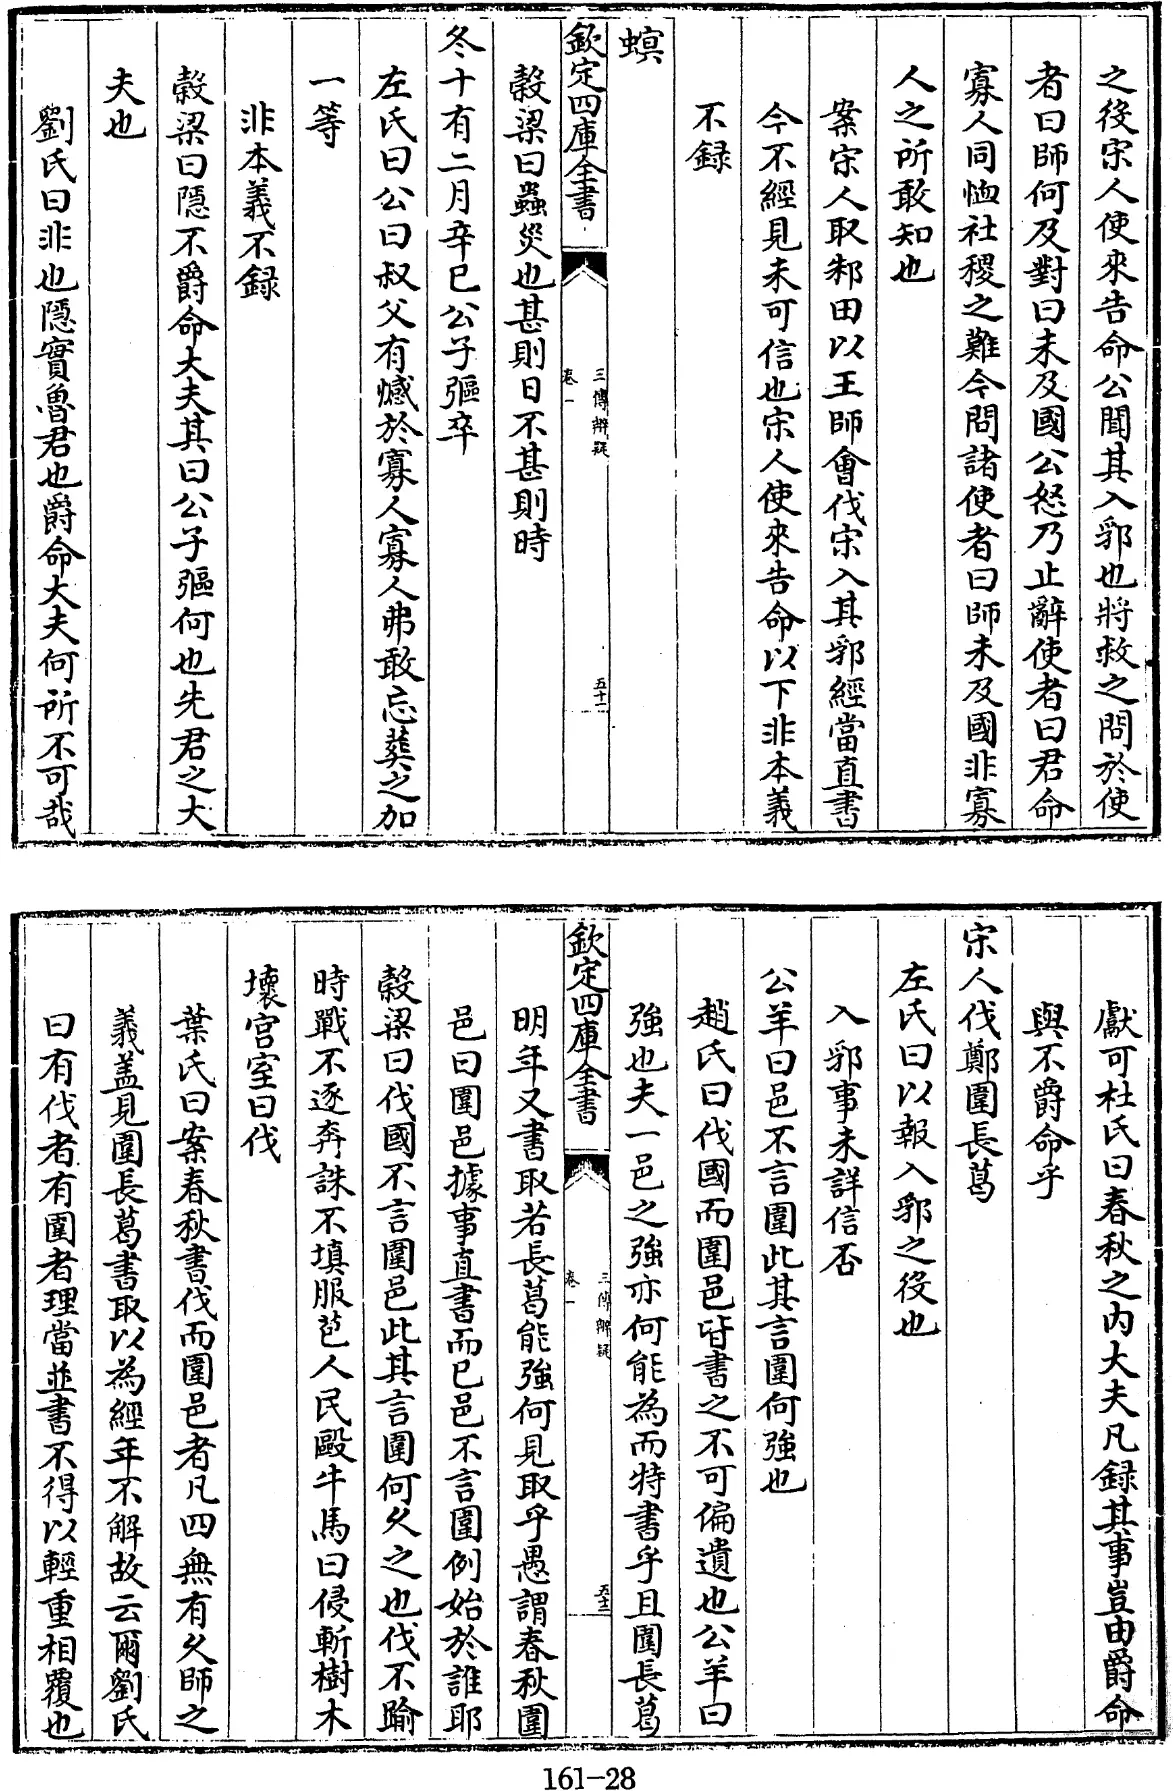 之役宋人使來告命公聞其入郛也將救之問於使
者曰師何及對曰未及國公怒乃止辭使者曰君命
寡人同恤社稷之難今問諸使者曰師未及國非寡
人之所敢知也
案宋人取邾田以王師會伐宋入其郛經當直書
今不經見未可信也宋人使來告命以下非本義
不録
螟
欽定四庫全書
三傳辨疑
卷一
五十一
穀梁曰蟲災也甚則日不甚則時
冬十有二月辛巳公子彄卒
左氏曰公曰叔父有憾於寡人寡人弗敢忘葬之加
一等
非本義不録
穀梁曰隱不爵命大夫其曰公子彄何也先君之大
夫也
劉氏曰非也隱實魯君也爵命大夫何所不可哉
獻可杜氏曰春秋之内大夫凡録其事豈由爵命
與不爵命乎
宋人伐鄭圍長葛
左氏曰以報入郛之役也
入郛事未詳信否
公羊曰邑不言圍此其言圍何強也
趙氏曰伐國而圍邑皆書之不可偏遺也公羊曰
強也夫一邑之強亦何能為而特書乎且圍長葛
欽定四庫全書
三傳辨疑
卷一
五十二
明年又書取若長葛能強何見取乎愚謂春秋圍
邑曰圍邑據事直書而已邑不言圍例始於誰耶
穀梁曰伐國不言圍邑此其言圍何久之也伐不踰
時戰不逐奔誅不填服苞人民毆牛馬曰侵斬樹木
壞宫室曰伐
葉氏曰案春秋書伐而圍邑者凡四無有久師之
義盖見圍長葛書取以為經年不解故云爾劉氏
曰有伐者有圍者理當並書不得以輕重相覆也
161-28